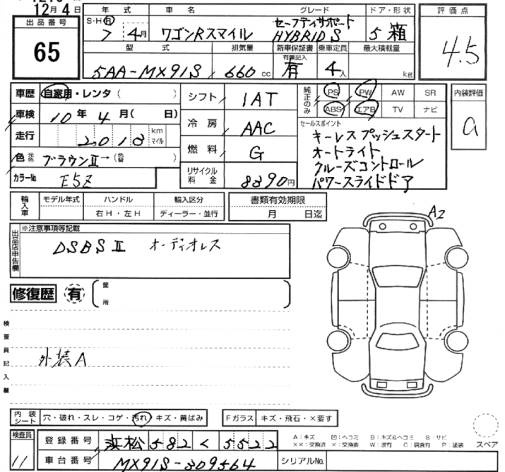 12月4日
出品番号
65
年式
車名
グレード
ドア・形状
評価点
S・H・R
7年4月
ワゴンRスマイル
セーフティサポート
HYBRID S
5 箱
4.5
型式
排気量
新車保証書
有
乗車定員
最大積載量
5AA-MX91S
660 cc
4人
車歴 自家用・レンタ( )
シフト
1AT
純正のみ
PS PW AW SR
ABS エアB TV ナビ
内装評価
a
車検 10年4月( 日)
冷房
AAC
セールスポイント
キーレスプッシュスタート
オートライト
クルーズコントロール
パワースライドドア
走行
2,018 km マイル
燃料
G
色 ブラウンⅡ→( )
リサイクル料金
8890円
カラーNo
E5Z
輸入車
モデル年式
ハンドル
輸入区分
書類有効期限
右H・左H
ディーラー・並行
月 日迄
出品店申告欄
※注意事項等記載
DSBSⅡ オーディオレス
A2
修復歴 有
箇所
検査員記入欄
外装A
内装シート
穴・破れ・スレ・コゲ・汚れ・キズ・黄ばみ
Fガラス
キズ・飛石・×要す
検査員
11
登録番号
浜松582く5522
車台番号
MX91S-309564
シリアルNo.
スペア